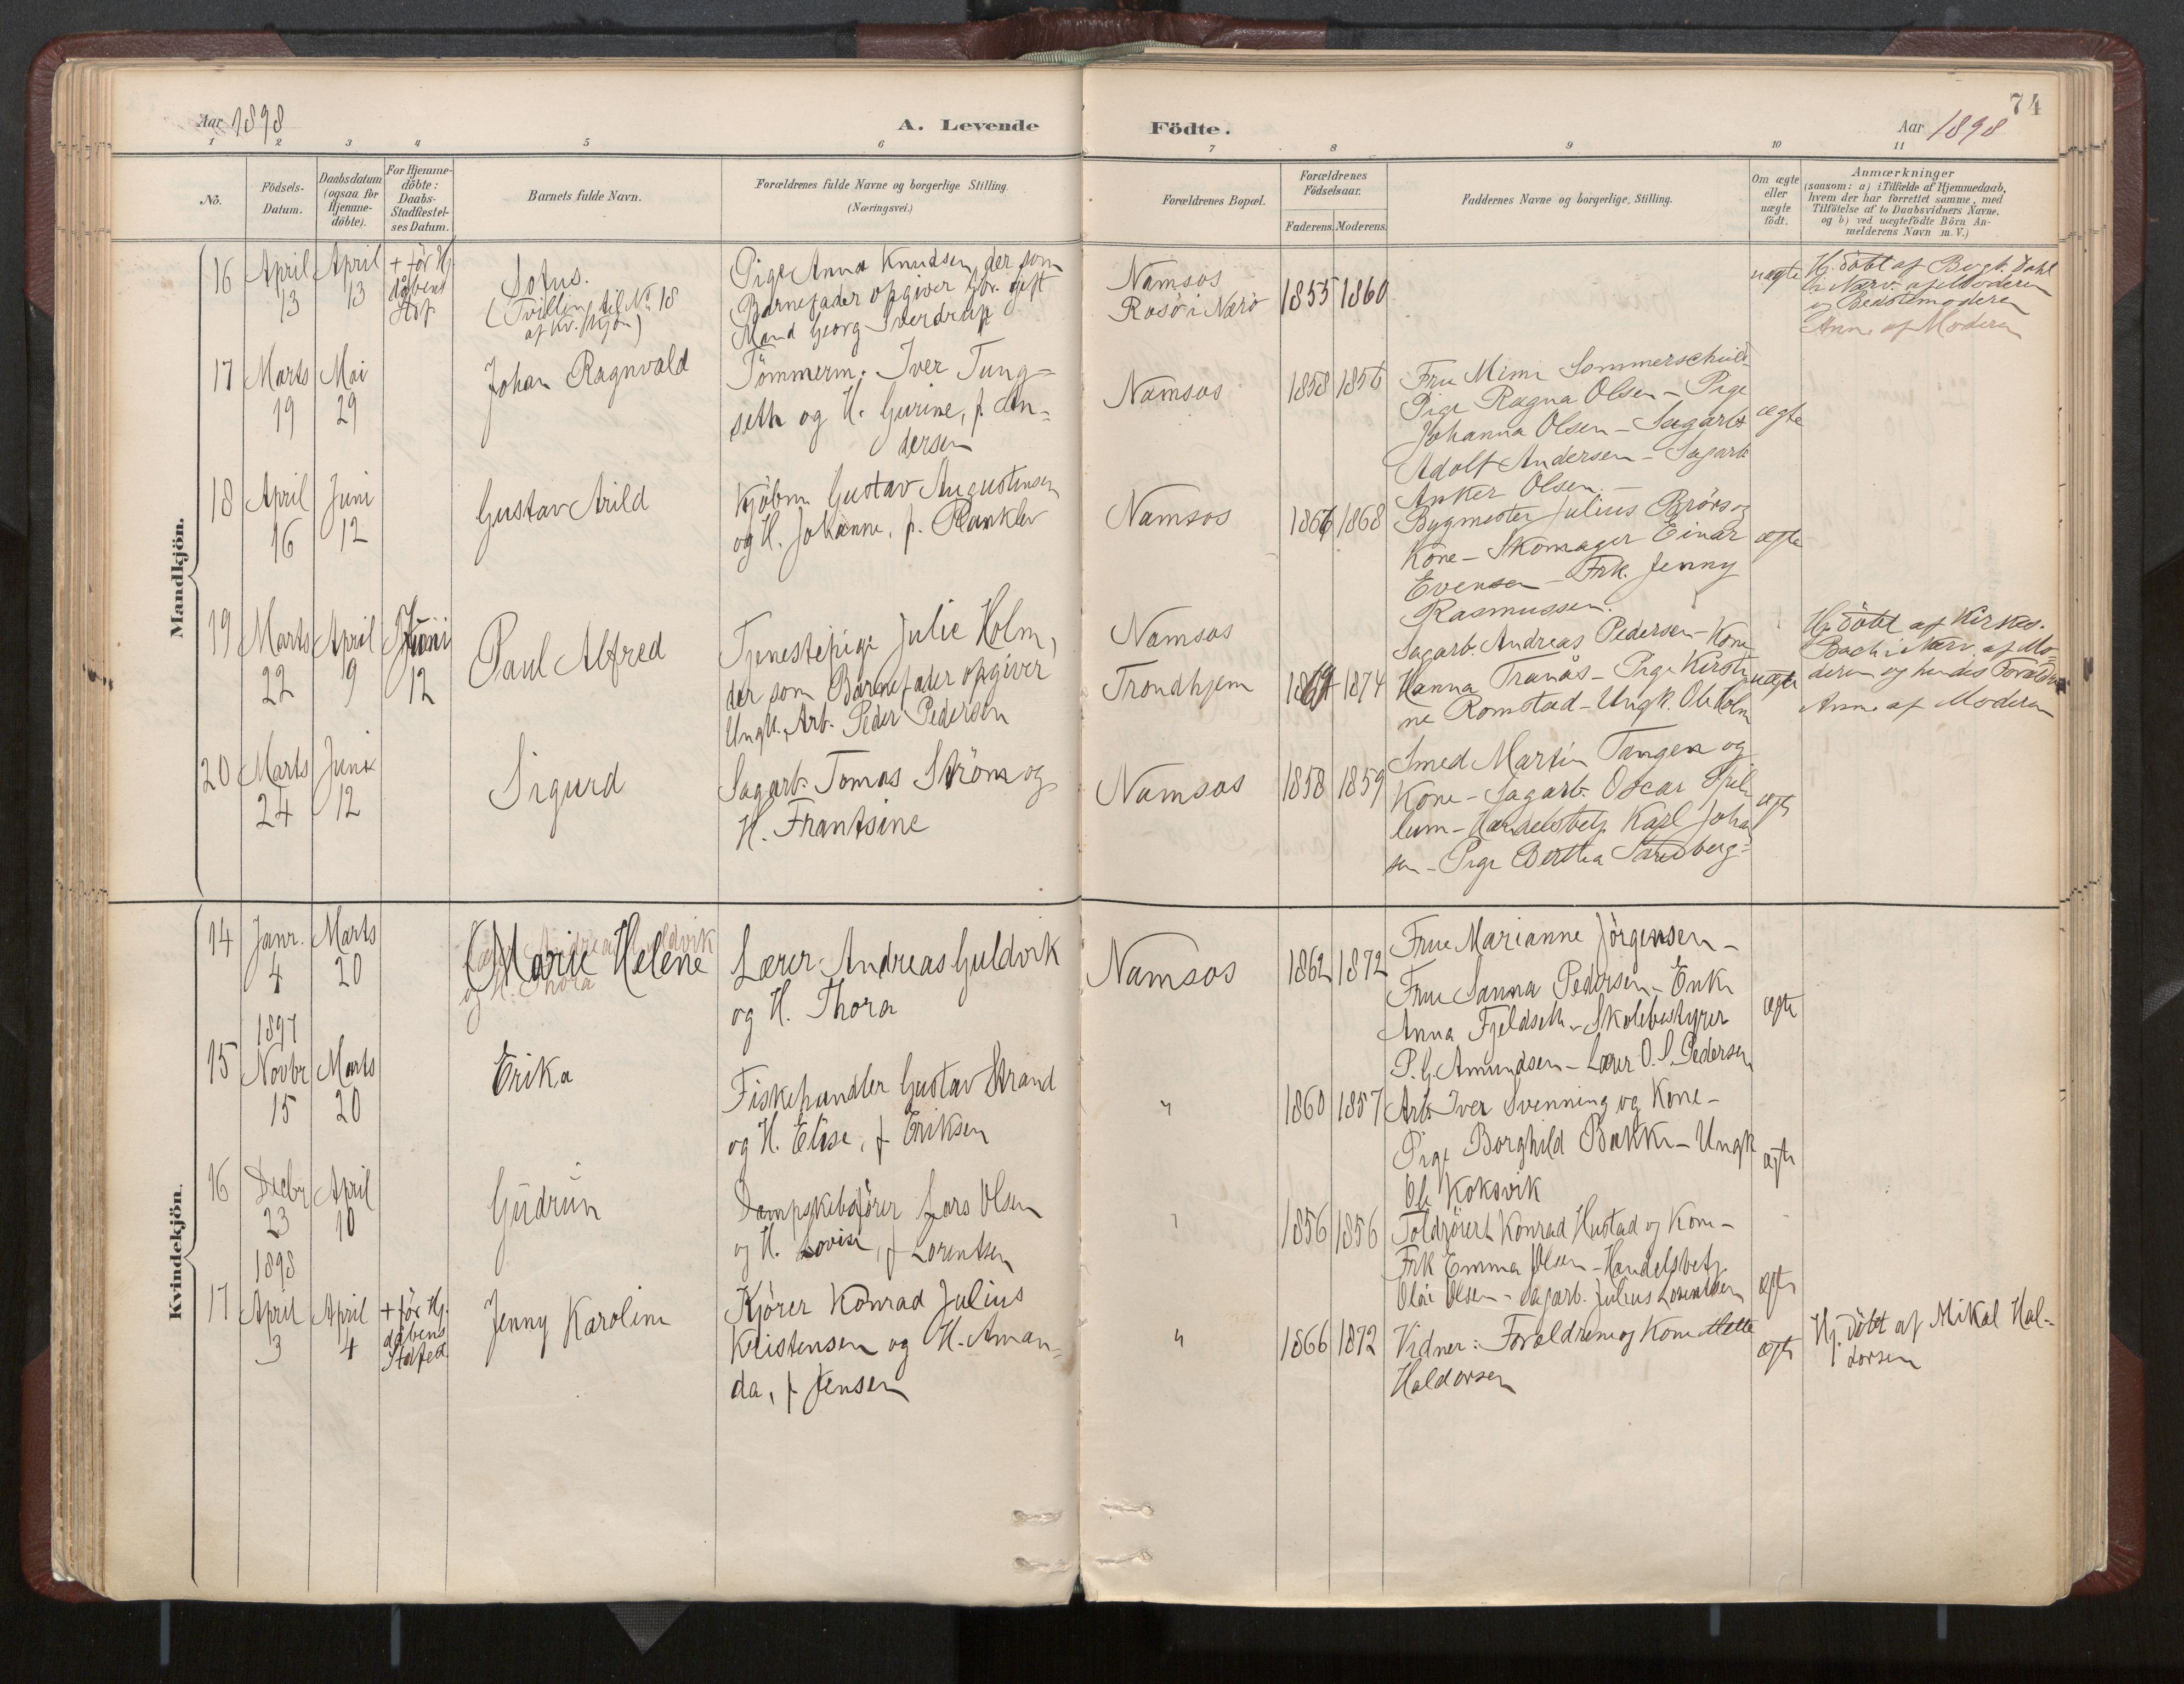 Aar 1898
A. Levende Födte.
Aar 1898
74
1 2 3 4 5 6 7 8 9 10 11
No.
Födsels-Datum.
Daabsdatum (ogsaa for Hjemme-döbte).
For Hjemme-döbte: Daabs-Stadfæstel-ses Datum.
Barnets fulde Navn.
Forældrenes fulde Navne og borgerlige Stilling.
(Næringsvei.)
Forældrenes Bopæl.
Forældrenes Födselsaar.
Faderens. Moderens.
Faddernes Navne og borgerlige Stilling.
Om ægte eller uægte födt.
Anmærkninger
(saasom: a) i Tilfælde af Hjemmedaab,
hvem der har forrettet samme, med
Tilföielse af to Daabsvidners Navne,
og b) ved uægtefödte Börn An-
melderens Navn m. V.)
Mandkjön.
16
April
13
April
13
+ för Hj.
dåbens
Stdf
Sofus.
(Tvilling til No 18
af Kv. Kjön)
Pige Anna Knudsen, der som
Barnefader opgiver Gbr. gift
Mand Georg Sverdrup
Namsos
Rosö i Nærö
1855 1860
uægte
Hj. döbt af Bergb. Dahl
i Nærv. af Moderen
og Bedstemoderen
Anm. af Moderen
17
Marts
19
Mai
29
Johan Ragnvald
Tömmerm. Iver Tung-
seth og H. Gurine, f. An-
dersen
Namsos
1858 1856
Fru Mimi Sommerschield
Pige Ragna Olsen - Pige
Johanna Olsen - Sagarb
Adolf Andersen - Sagarb
Anker Olsen. -
ægte
18
April
16
Juni
12
Gustav Arild
Kjöbm. Gustav Augustinsen
og H. Johanne, f. Ranklev
Namsos
1866 1868
Bygmester Julius Brörs og
Kone - Skomager Einar
Evensen - Frk. Jenny
Rasmussen.
ægte
19
Marts
22
April
9
Juni
12
Paul Alfred
Tjenestepige Julie Holm,
der som Barnefader opgiver
Ungk. Arb. Peder Pedersen
Namsos
Trondhjem
1874
Sagarb. Andreas Pedersen - Kone
Hanna Tranås - Pige Kirsti-
ne Romstad - Ungk. Ole Holm
uægte
Hj. döbt af Kirkes.
Bach i Nærv. af Mo-
deren og hendes Forældre
Anm. af Moderen
20
Marts
24
Juni
12
Sigurd
Sagarb. Tomas Ström og
H. Frantsine
Namsos
1858 1859
Smed Martin Tangen og
Kone - Sagarb. Oscar Spil-
lum - Handelsbetj. Karl Johan
sen - Pige Bertha Sandberg
ægte
Kvindekjön.
14
Janr.
4
Marts
20
Marie Helene
Lærer Andreas Guldvik
og H. Thora
Namsos
1862 1872
Frue Marianne Jörgensen -
Frue Sanna Pedersen - Enke
Anna Fjeldseth - Skolebestyrer
P. G. Amundsen - Lærer O. S. Pedersen
ægte
15
1897
Novbr
15
Marts
20
Erika
Fiskehandler Gustav Strand
og H. Elise, f Eriksen
"
1860 1857
Arb. Iver Svenning og Kone -
Pige Borghild Bakke - Ungk
Ole Koksvik
ægte
16
Decbr
23
April
10
Gudrun
Dampskibsförer Lars Olsen
og H. Lovise, f Lorentsen
"
1856 1856
Toldröiert Konrad Hustad og Kone -
Frk Emma Olsen - Handelsbetj.
Olai Olsen - Sagarb. Julius Lorentsen
ægte
17
1898
April
3
April
4
+ för Hj.
dåbens
Stdfest
Jenny Karoline
Kjörer Konrad Julius
Kristensen og H. Aman-
da, f Jensen
"
1866 1872
Vidner: Forældrene og Kone Mette
Haldorsen
ægte
Hj. döbt af Mikal Hal-
dorsen